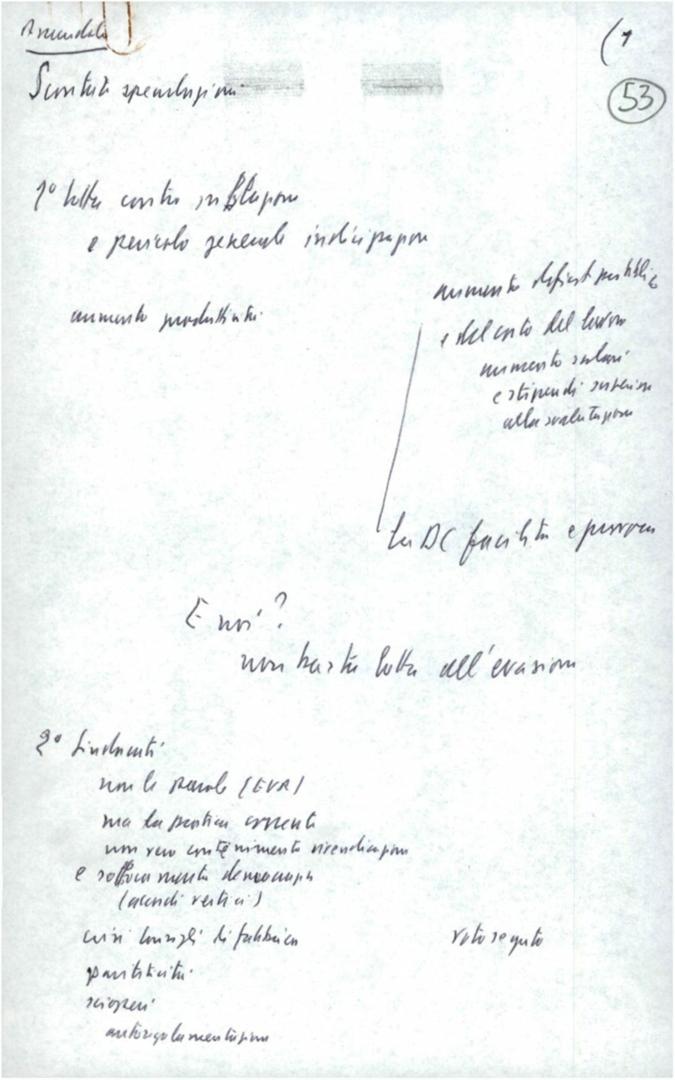 Amendola
(1
53
Scontate speculazioni
1° lotta contro inflazione
e pericolo generale indicizzazione
aumento produttività
aumento deficit pubblico
e del costo del lavoro
aumento salari
e stipendi superiore
alla svalutazione
la DC facilita e provoca
E noi?
non basta lotta all'evasione
2° Sindacati
non le parole (EUR)
ma la pratica corrente
non vero contenimento rivendicazioni
e soffocamento democrazia
(accordi vertici)
crisi consigli di fabbrica
voto segreto
pariteticità
scioperi
autoregolamentazione